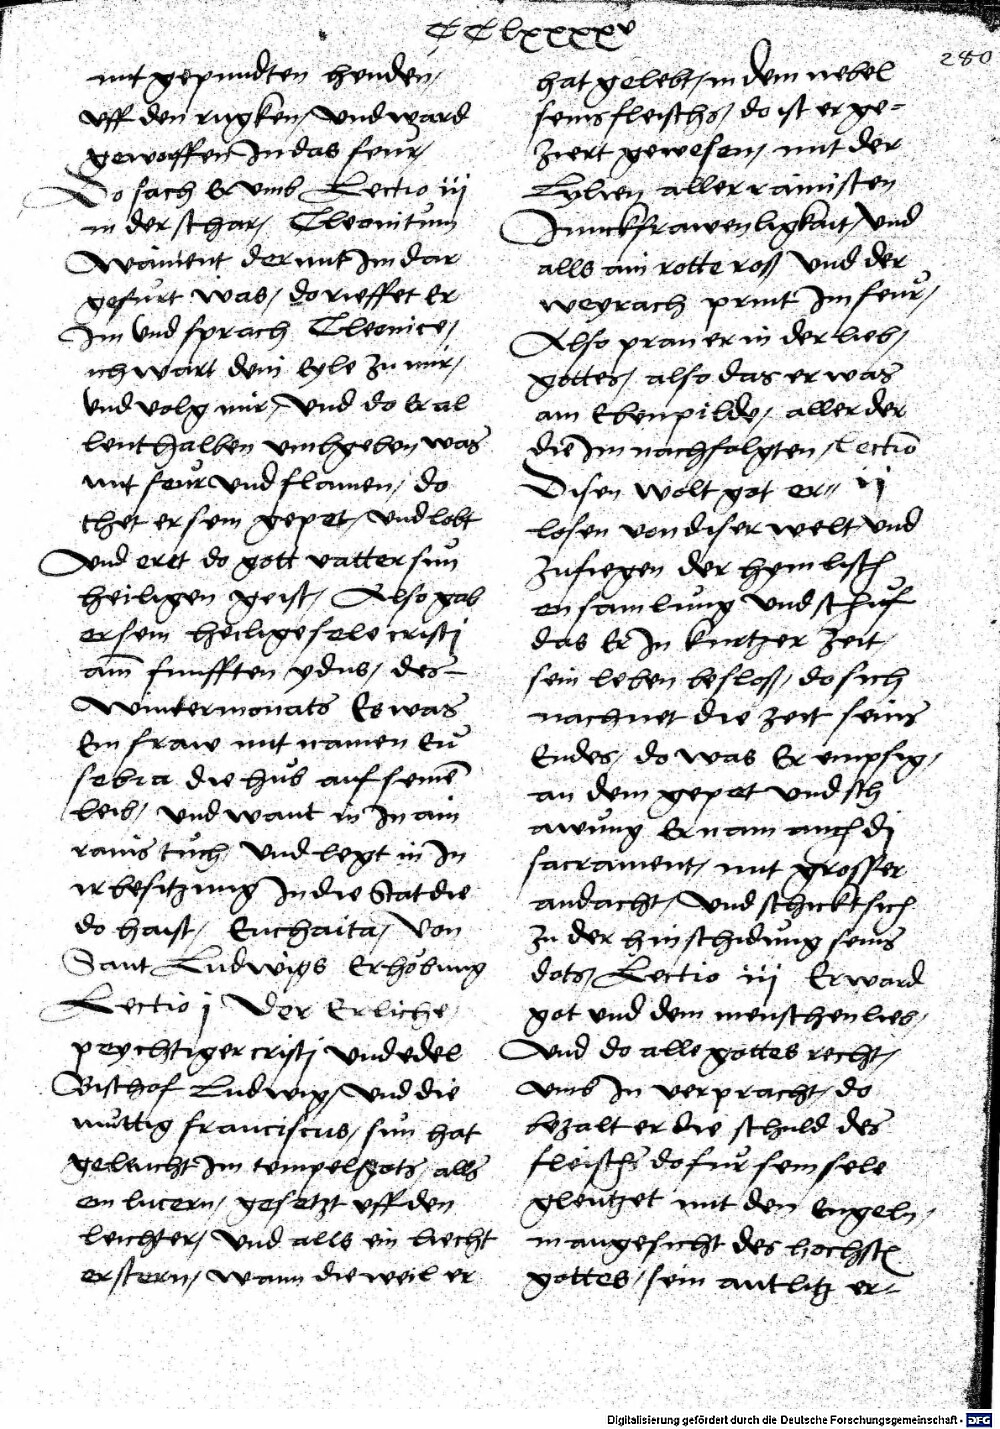 CClxxxxv
280
mit gepundten henden,
uff den rugken, und ward
geworffen In das feur,
Do sach Er umb Lectio iij
in der schar, Cleonitum
wainent der mit Im dar
gefurt was, do rieffet Er
Im und sprach Cleonice,
ich wart dein Eyle zu mir,
und volg mir, und do Er al
lenthalben umbgeben was
mit feur und flamen, do
thet er sein gepet, und lobt
und eret do gott vatter sun
heiligen geist, Also gab
er sein heilige sele cristj
am funfften ydus, des
wintermonats Es was
Ein fraw mit namen Eu
sebia die hub auf seinē
leib, und want in In ain
rains tuch, und legt in In
ir besitzung In die Stat die
do haist, Euchaita, Von
Sant Ludwigs Erhobung
Lectio j Der Erliche
peychtiger cristj und edel
Bischof Ludwig, und die
muttig franciscus, sun hat
geleucht Im tempel gots, alls
ein lucern, gesetzt uff den
leichter, und alls ein liecht
er stern, wann die weil er
hat gelebt, in dem nebel
seins fleischs, do ist er ge-
ziert gewesen, mit der
Lylien aller rainisten
Junckfrawenligkait, und
alls ain rotte roß und der
weyrach print Im feur,
Also pran er in der lieb,
gottes, also das er was
ain Ebenpilde, aller der
die Im nachfolgten, Lectio
Disen wolt got er- ij
losen von diser welt, und
zufiegen der hymlisch
en samlung und schuf
das Er In kurtzer zeit,
sein leben besloß, do sich
nachnet die zeit seins
Endes, do was Er empsig,
an dem gepet und sch
awung Er nam auch dj
sacrament, mit grosser
andacht, und schickt sich
zu der hinschidung seins
dots, Lectio iij Er ward
got und dem menschen lieb,
und do alle gottes recht,
umb In verpracht, do
bezalt er die schuld des
fleischs do fur sein sele
glentzet mit den Engeln,
in angesicht des hochstē
gottes, sein antlitz er-
Digitalisierung gefördert durch die Deutsche Forschungsgemeinschaft - DFG